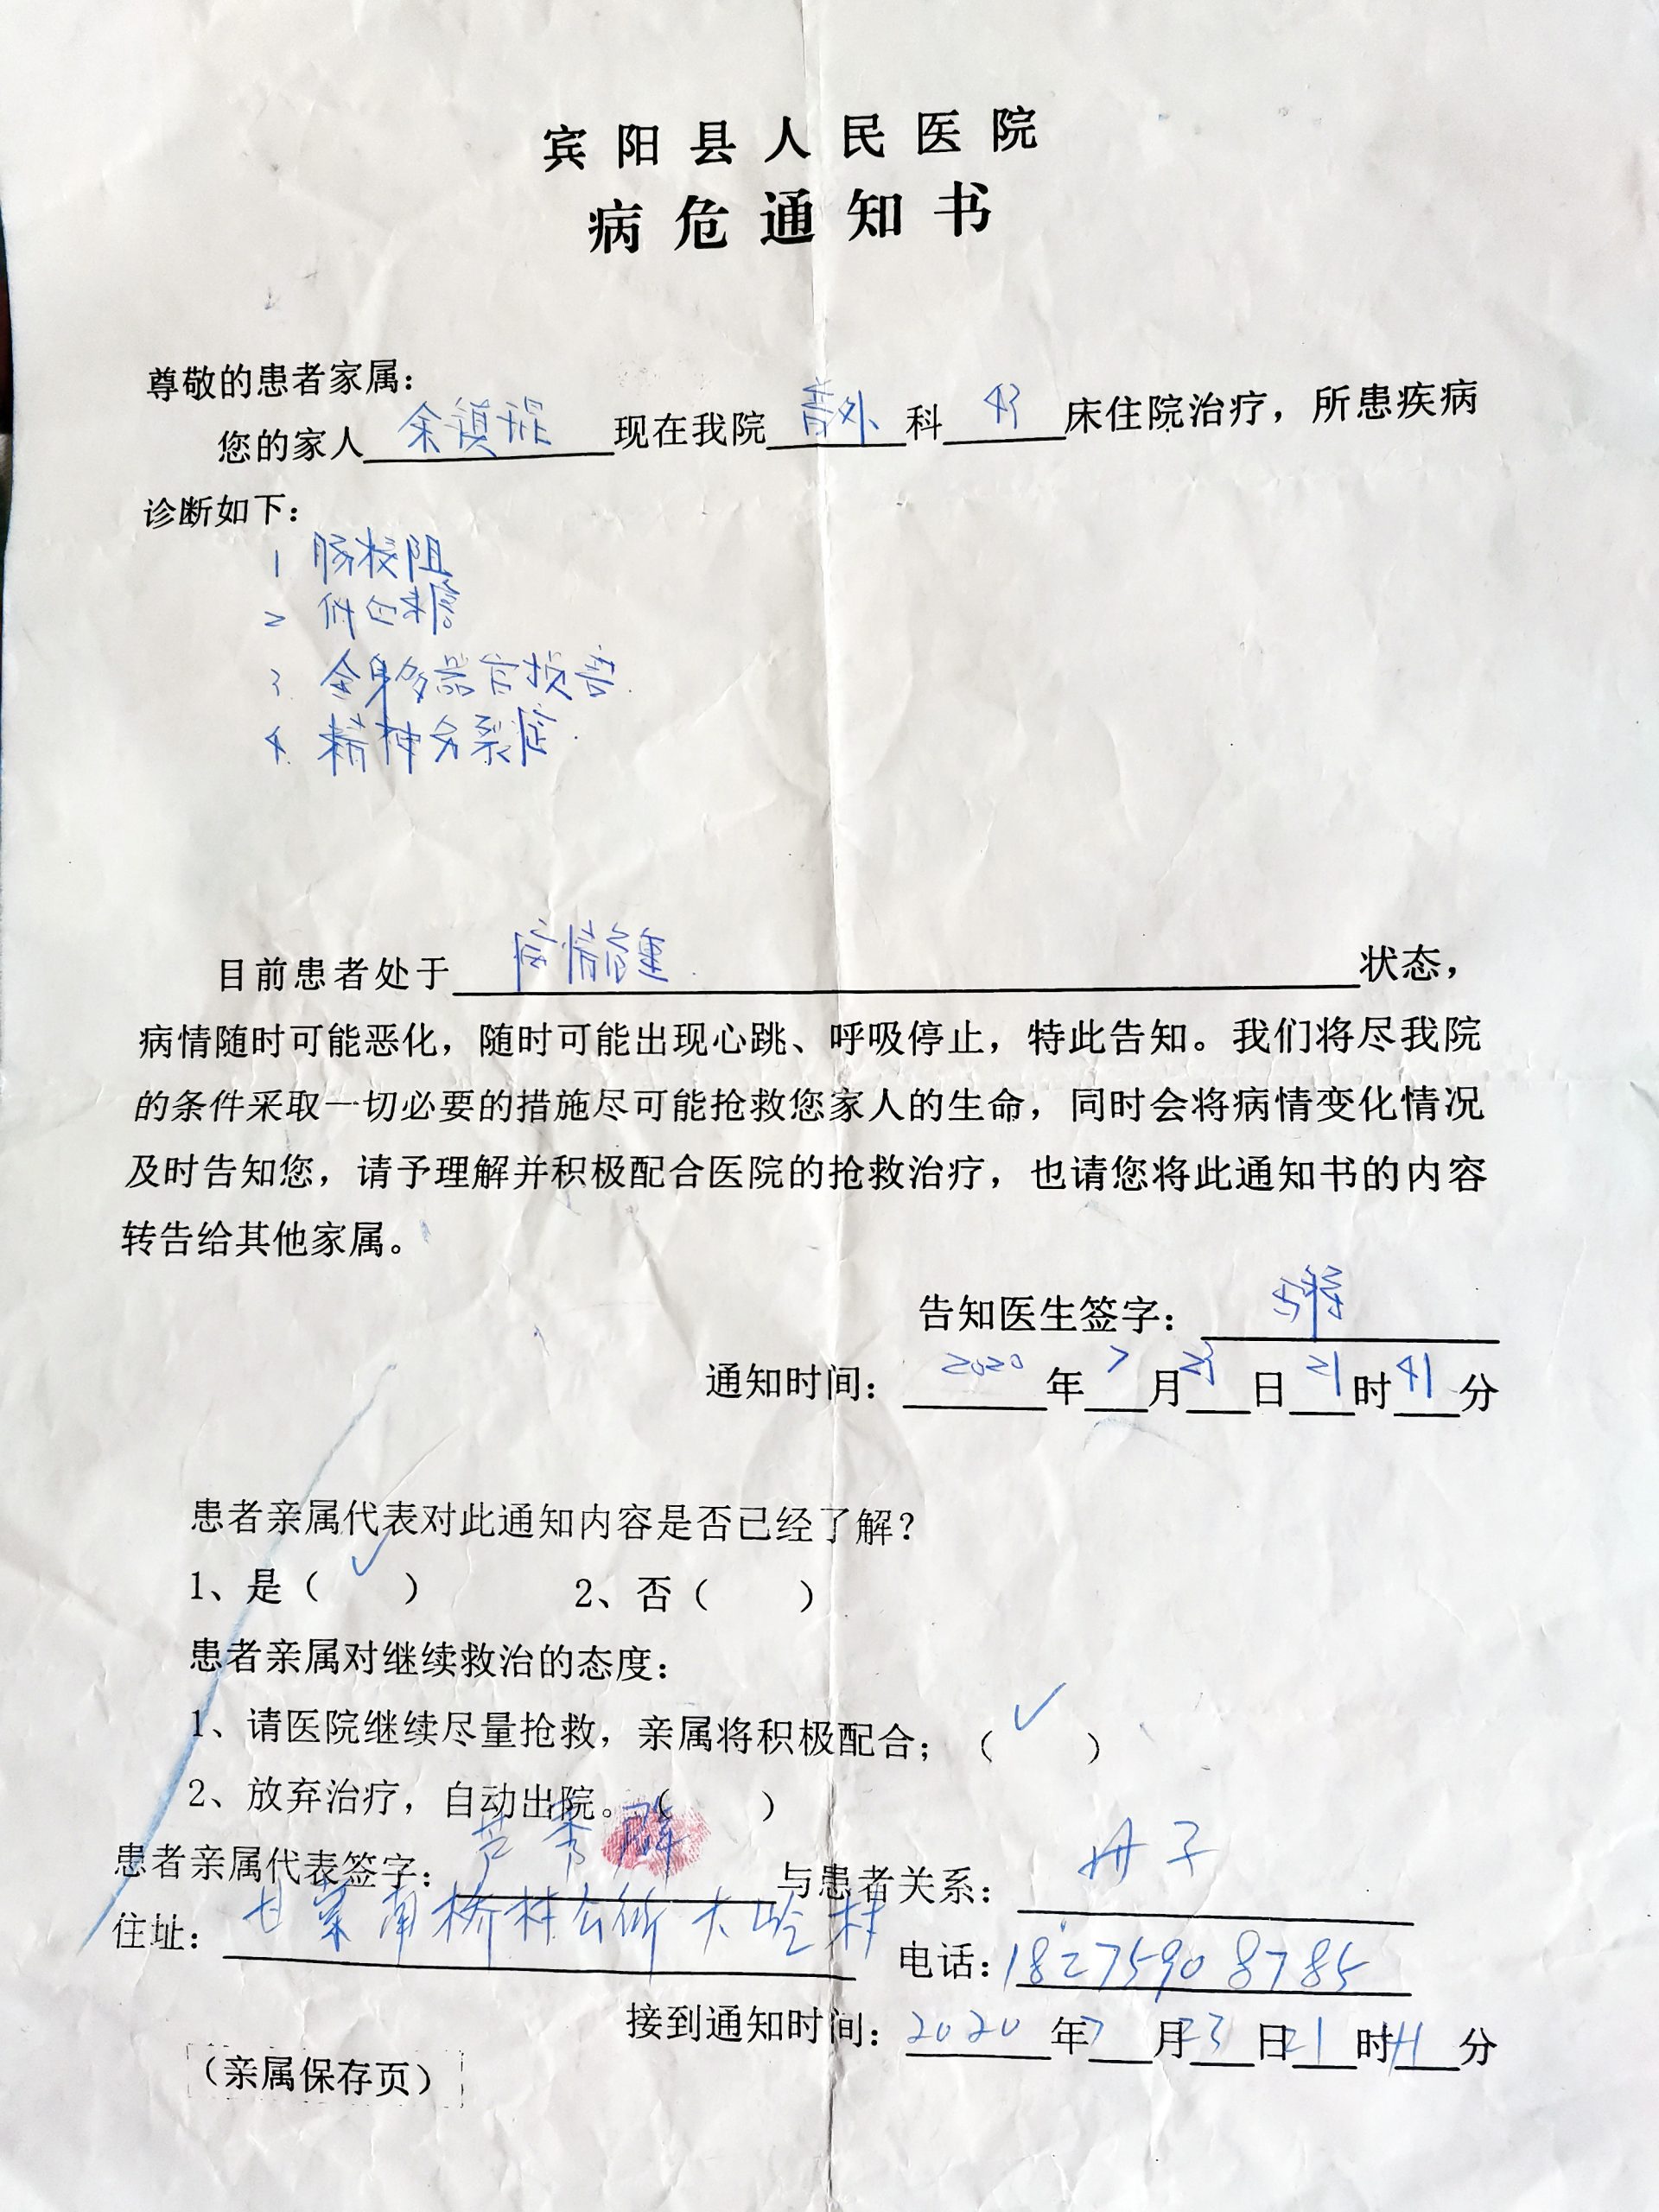 宾阳县人民医院
病危通知书
尊敬的患者家属：
您的家人余镇琨现在我院普外科43床住院治疗，所患疾病
诊断如下：
1 肠梗阻
2
3. 全身多器官损害.
4. 精神分裂症.
目前患者处于病情危重状态，
病情随时可能恶化，随时可能出现心跳、呼吸停止，特此告知。我们将尽我院
的条件采取一切必要的措施尽可能抢救您家人的生命，同时会将病情变化情况
及时告知您，请予理解并积极配合医院的抢救治疗，也请您将此通知书的内容
转告给其他家属。
告知医生签字：
通知时间：2020年7月23日21时41分
患者亲属代表对此通知内容是否已经了解？
1、是（✓） 2、否（ ）
患者亲属对继续救治的态度：
1、请医院继续尽量抢救，亲属将积极配合；（✓）
2、放弃治疗，自动出院。（ ）
患者亲属代表签字： 与患者关系：母子
住址：甘棠南桥村公所大岭村 电话：18275908785
接到通知时间：2020年7月23日21时41分
（亲属保存页）